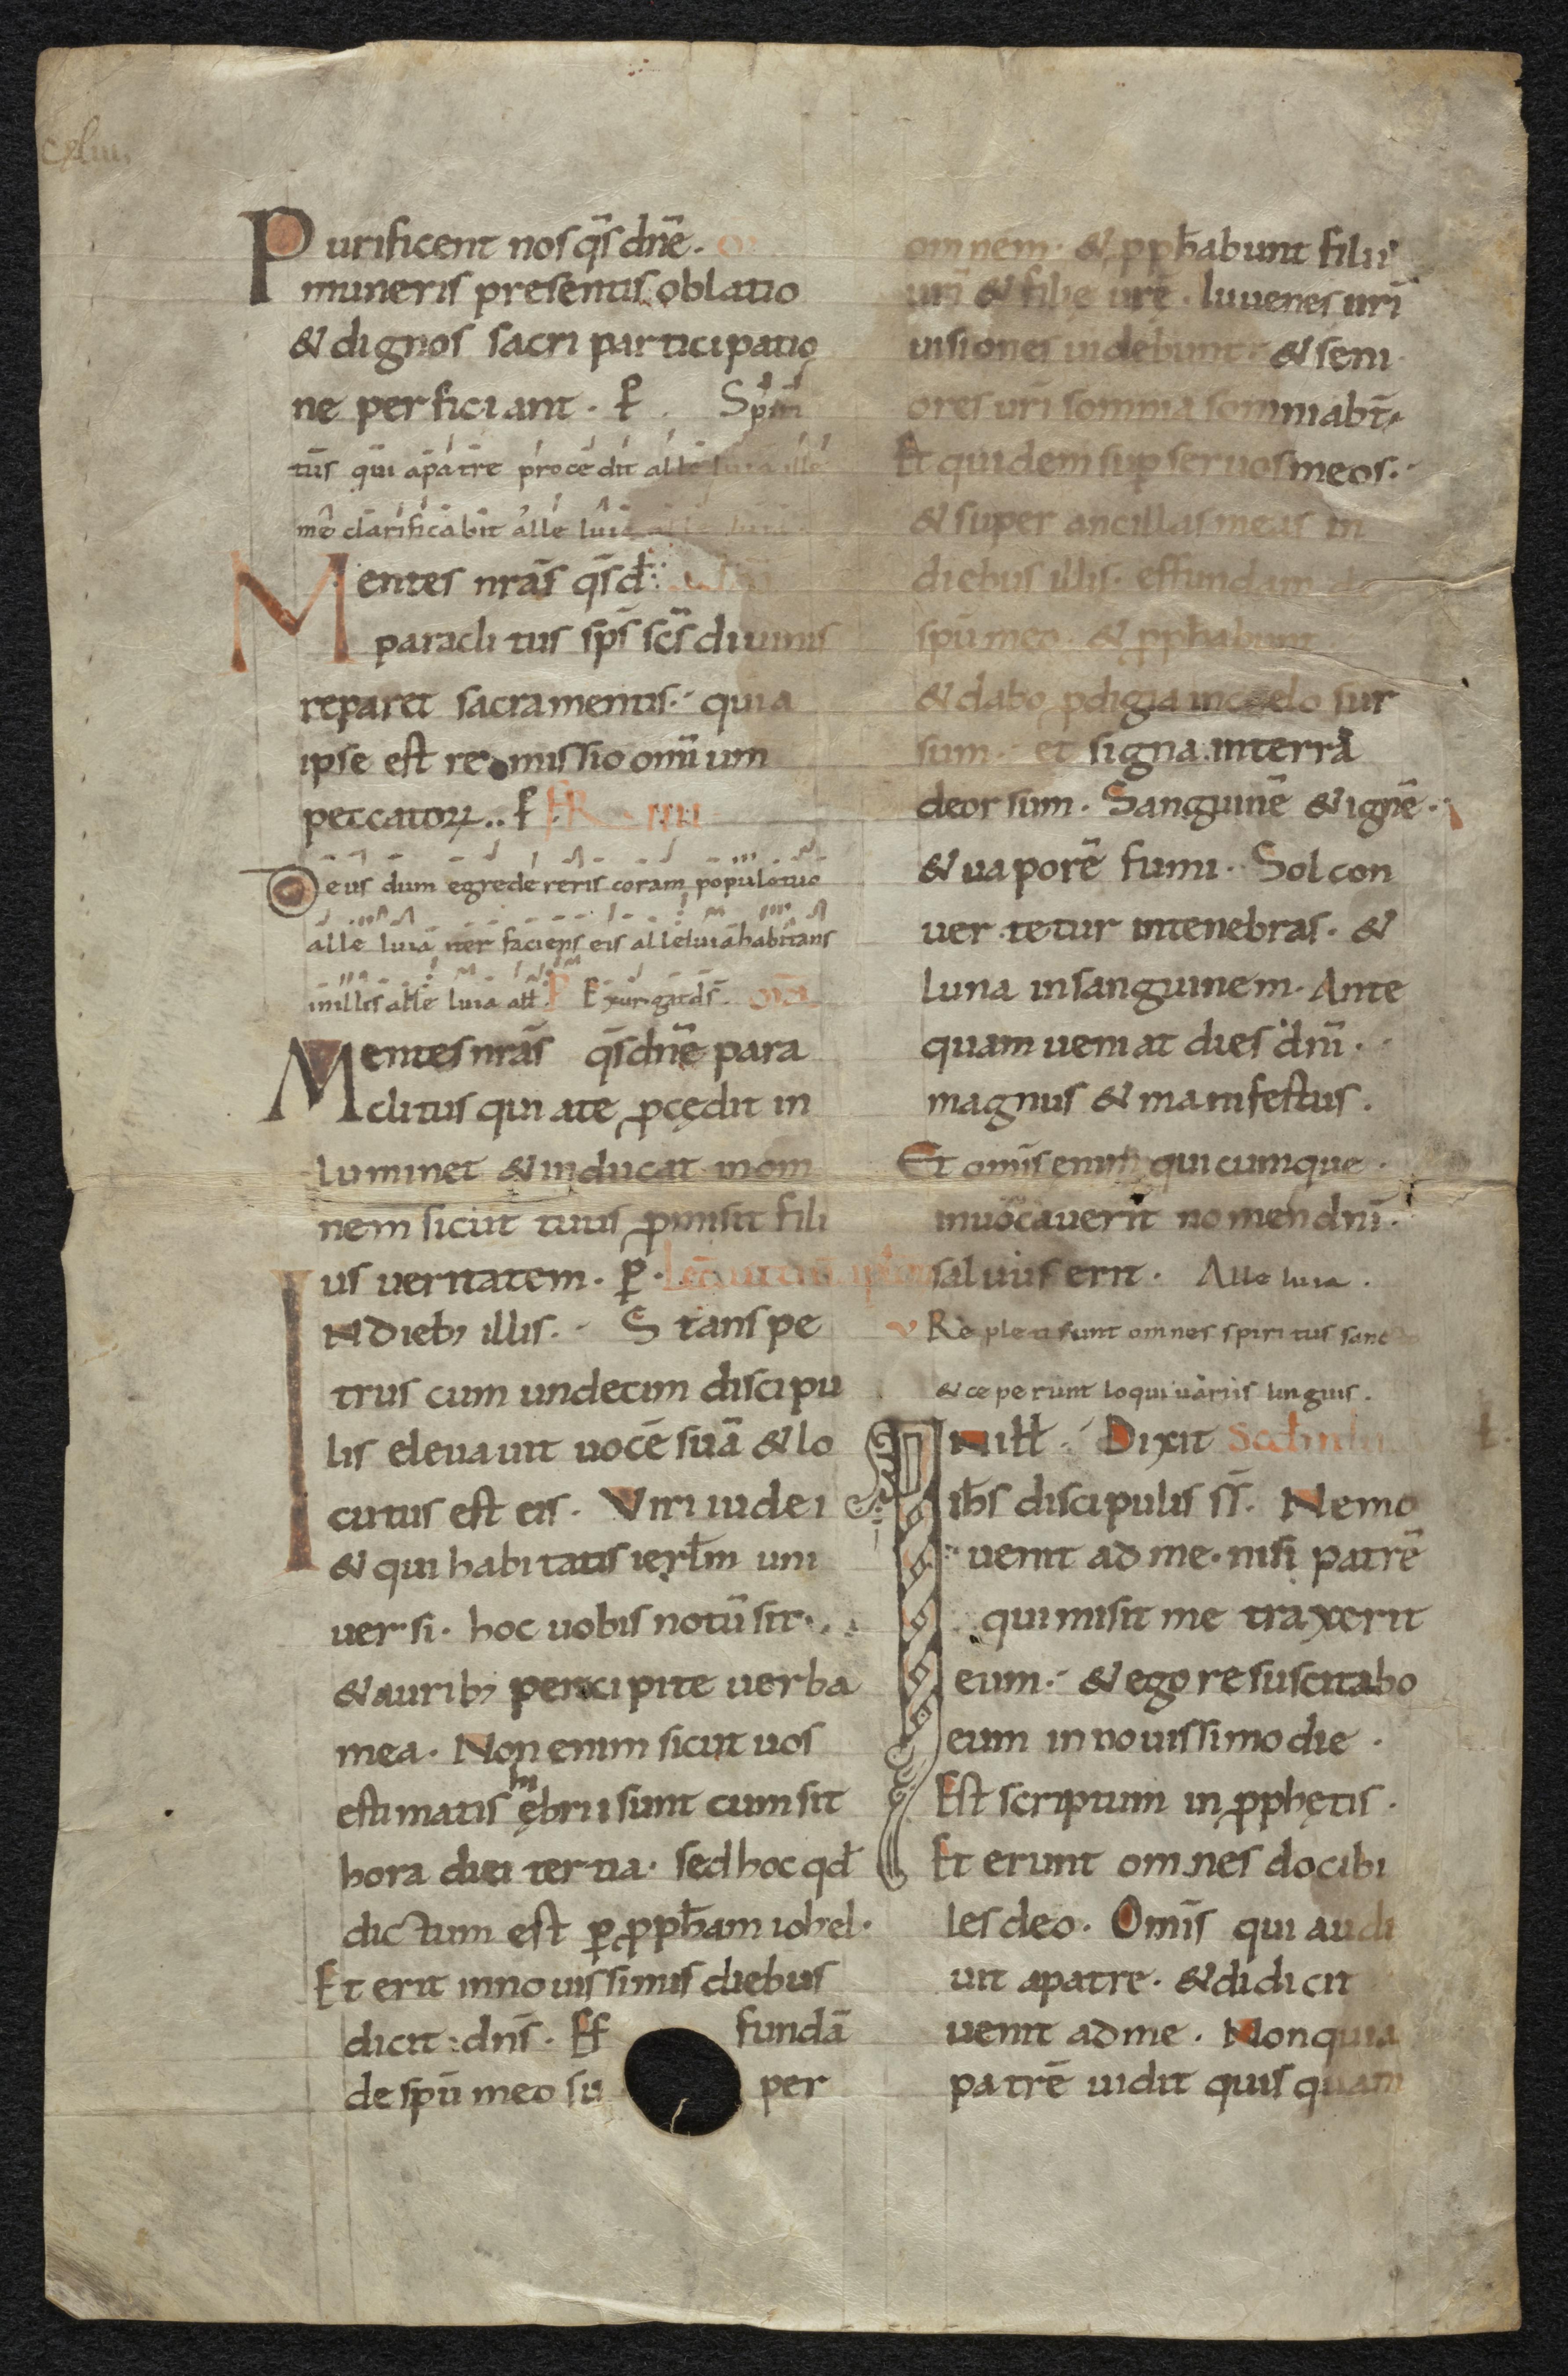 cxliii,
Purificent nos q̄s dn̄e.
muneris presentis oblatio
& dignos sacri participatio
ne perficiant. P̄. Spiri
tus qui a patre procedit alleluia ille
me clarificabit alle luia alle luia
Mentes nr̄as q̄s d:
paraclitus sp̄s sc̄s diuinis
reparet sacramentis. quia
ipse est remissio omīum
peccatoꝝ.. P̄ FR IIII
Deus dum egredereris coram populo tuo
alle luia iter faciens eis alleluia habitans
in illis alle luia all. P Exurgat ds̄. or̄a
Mentes nr̄as q̄s dn̄e para
clitus qui a te ꝓcędit in
luminet & inducat in om
nem sicut tuus ꝓmisit fili
us ueritatem. ꝑ.
IN dieb; illis. Stans pe
trus cum undecim discipu
lis eleuauit uocē suā & lo
cutus est eis. Viri iudei
& qui habitatis ierl̄m uni
uersi. hoc uobis notū sit.
& aurib; percipite uerba
mea. Non enim sicut uos
estimatis hi ębrii sunt cum sit
hora diei tertia. sed hoc qd̄
dictum est ꝑ ꝓph̄am iohel.
Et erit in nouissimis diebus
dicit dn̄s. Ef fundā
de sp̄u meo su per
omnem. & ꝓph̄abunt filii
ur̄i & filię ur̄ę. Iuuenes ur̄i
uisiones uidebunt. & seni
ores ur̄i somnia somniabt̄.
Et quidem suꝑ seruos meos.
& super ancillas meas in
diebus illis. effundam de
sp̄u meo. & ꝓph̄abunt
& dabo ꝓdigia in caelo sur
sum. et signa in terra
deorsum. Sanguinē & ignē.
& uaporē fumi. Sol con
uertetur in tenebras. &
luna in sanguinem. Ante
quam ueniat dies dn̄i.
magnus & manifestus.
Et omīs enim quicumque
inuocauerit nomen dn̄i.
saluus erit. Alle luia.
v Repleti sunt omnes spiritus sancto
& ceperunt loqui uariis linguis.
IN ill̄. Dixit
ih̄s discipulis s̄s. Nemo
uenit ad me. nisi patrē
qui misit me traxerit
eum. & ego resuscitabo
eum in nouissimo die.
Est scriptum in ꝓphętis.
Et erunt omnes docibi
les deo. Omīs qui audi
uit a patre. & didicit
uenit ad me. Non quia
patrē uidit quisquam